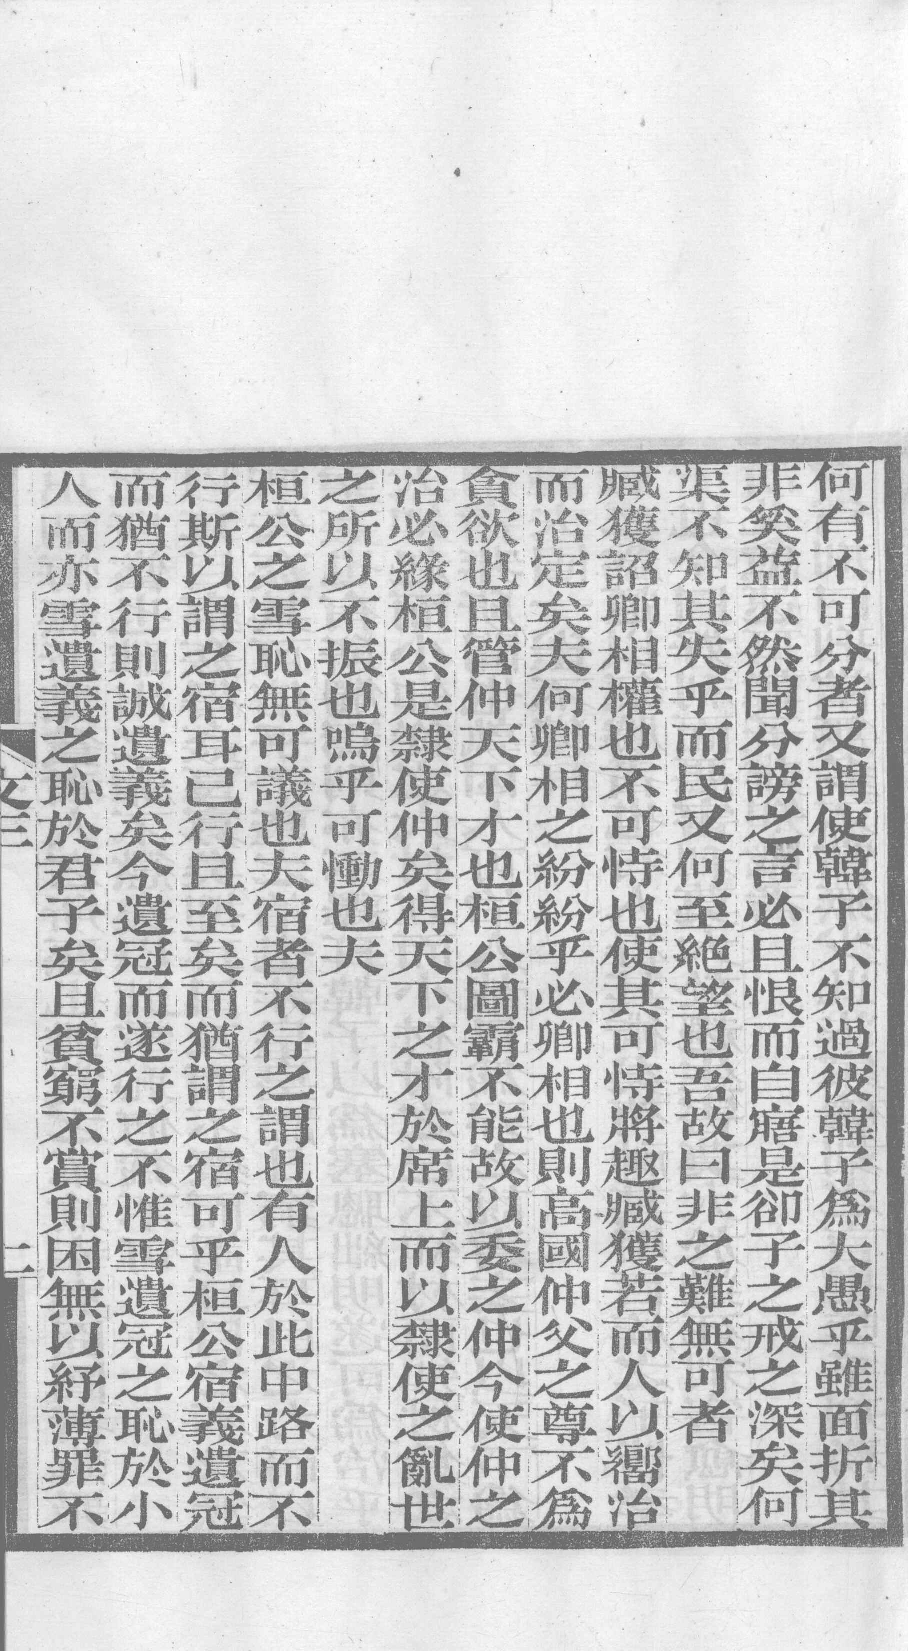 何有不可分者又謂使韓子不知過彼韓子爲大愚乎雖面折其
非奚益不然聞分謗之言必且恨而自寤是卻子之戒之深矣何
渠不知其失乎而民又何至絶望也吾故曰非之難無可者
臧獲詔卿相權也不可恃也使其可恃將趣臧獲若而人以嚮治
而治定矣夫何卿相之紛紛乎必卿相也則高國仲父之尊不爲
貪欲也且管仲天下才也桓公圖霸不能故以委之仲今使仲之
治必緣桓公是隸使仲矣得天下之才於席上而以隸使之亂世
之所以不振也嗚乎可慟也夫
桓公之雪恥無可議也夫宿者不行之謂也有人於此中路而不
行斯以謂之宿耳已行且至矣而猶謂之宿可乎桓公宿義遺冠
而猶不行則誠遺義矣今遺冠而遂行之不惟雪遺冠之恥於小
人而亦雪遺義之恥於君子矣且貧窮不賞則困無以紓薄罪不
文三
二